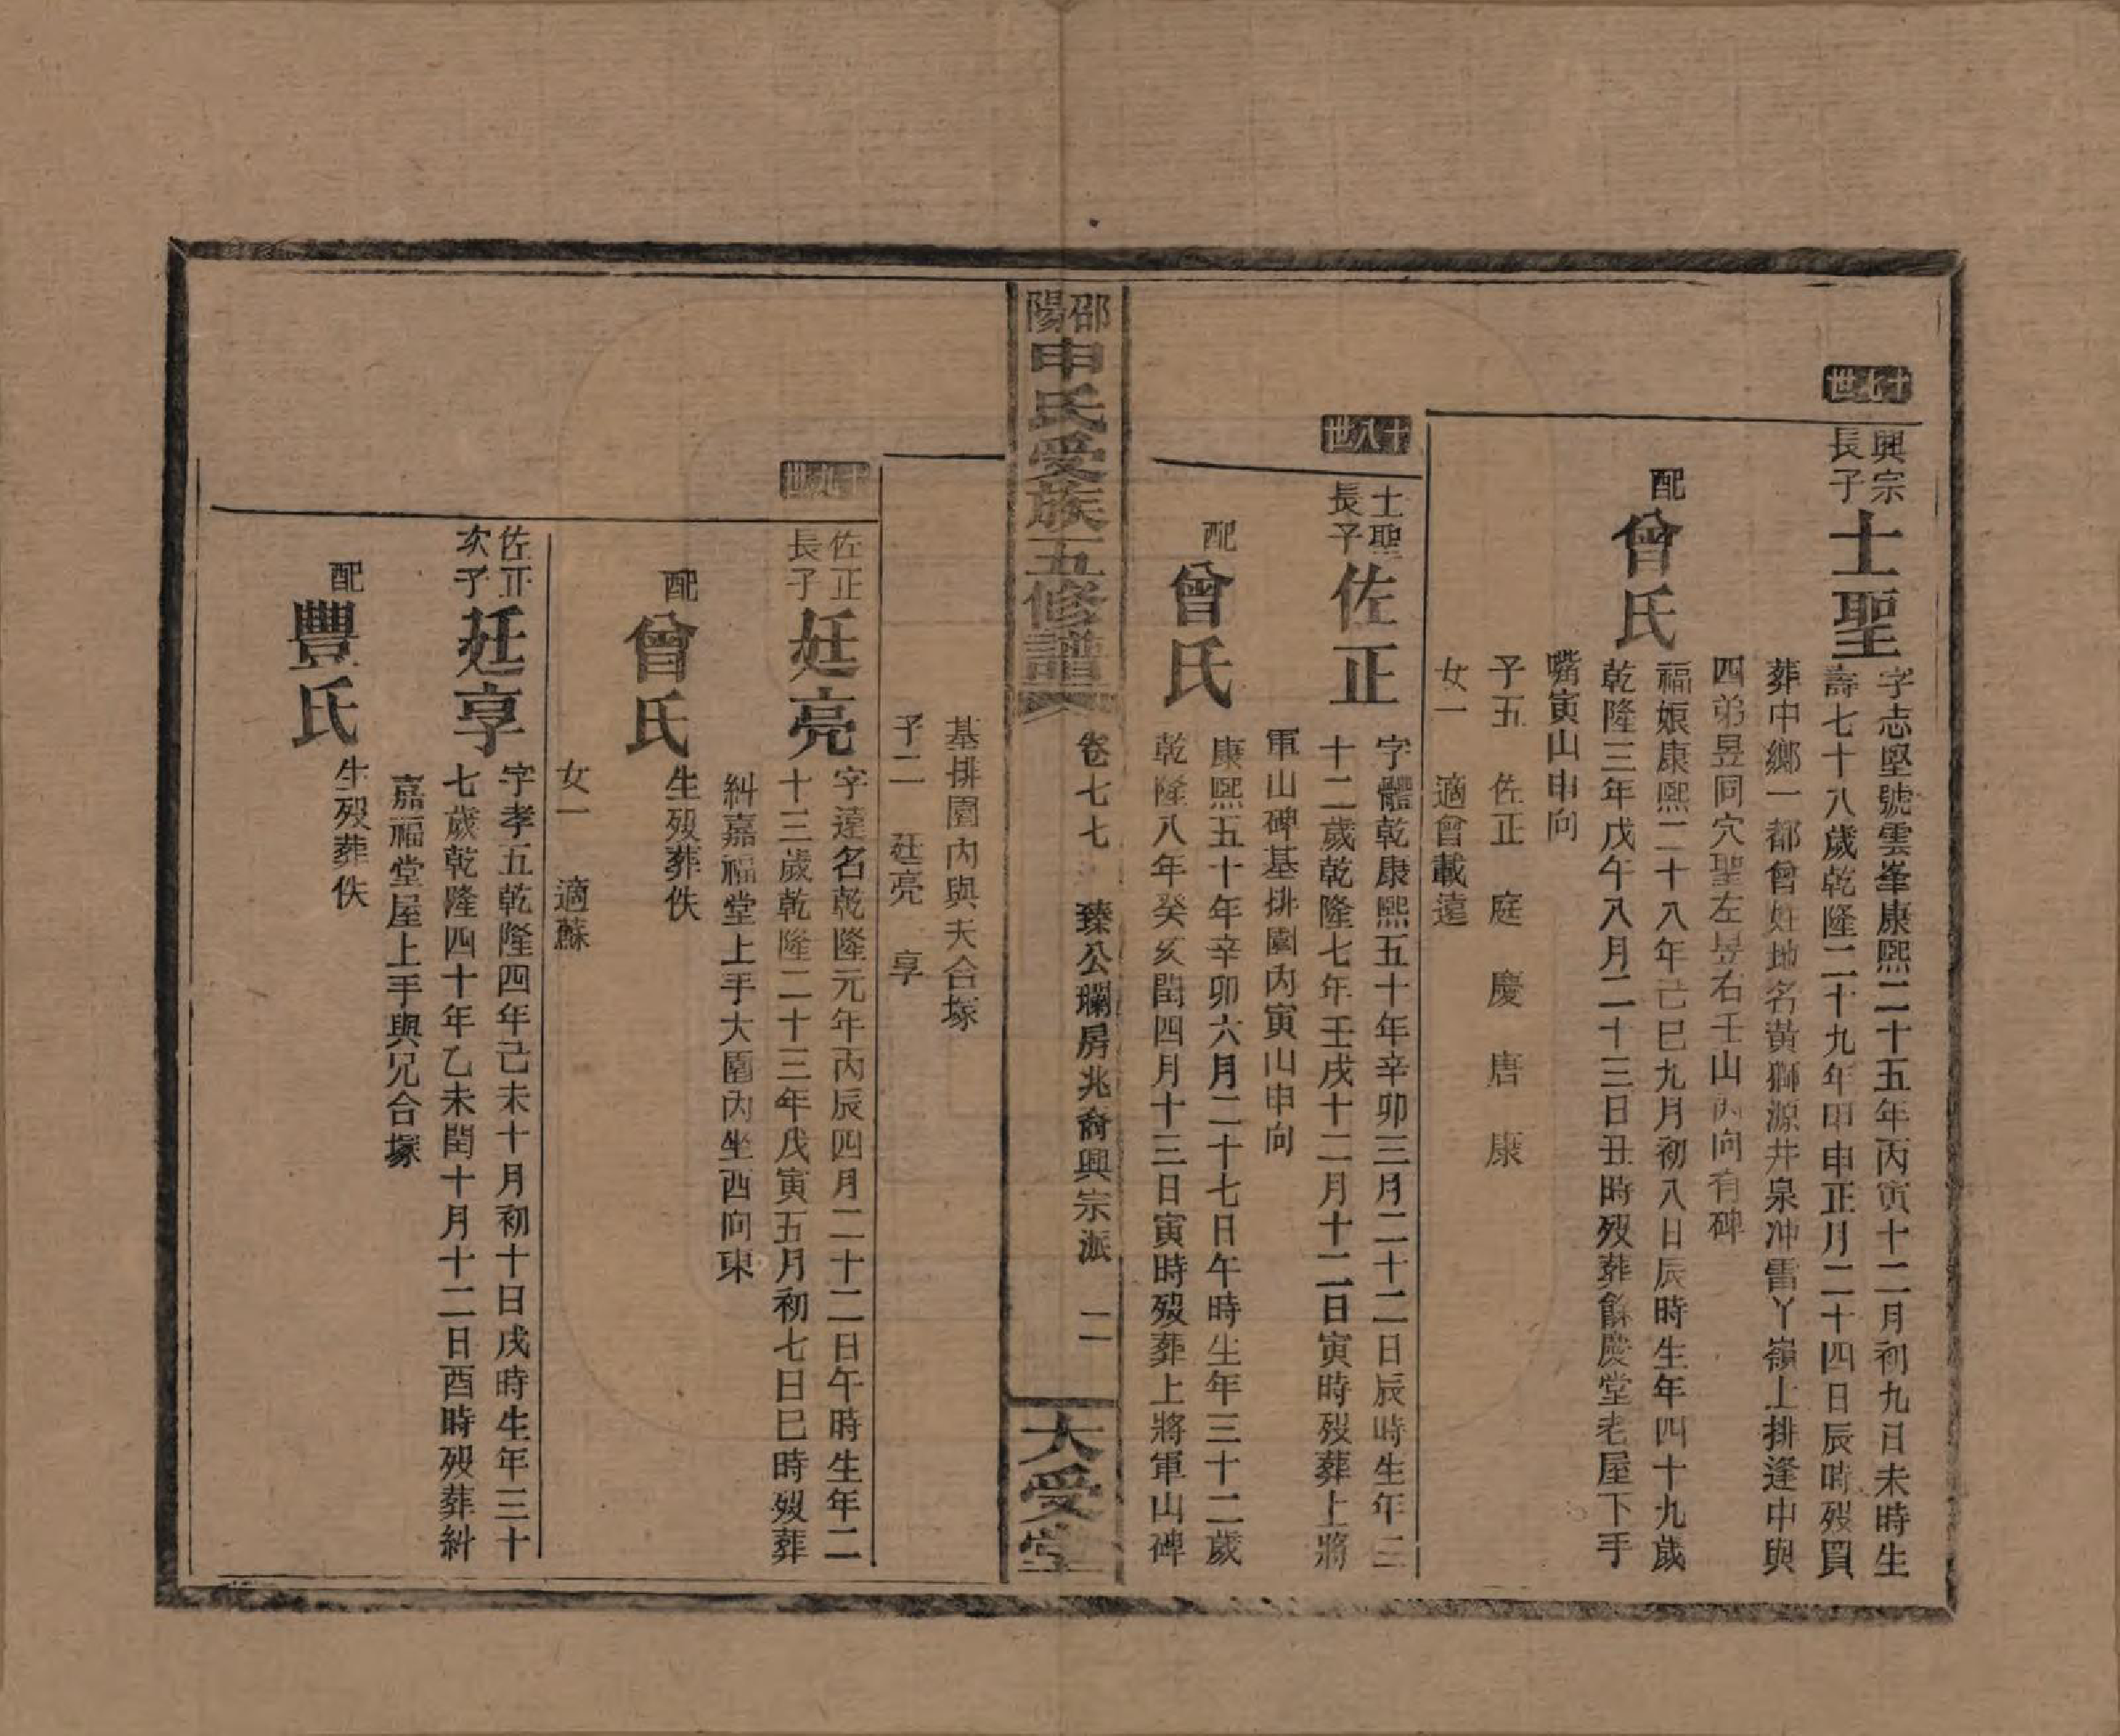 十七世
興宗長子士聖
字志堅號雲峯康熙二十五年丙寅十二月初九日未時生
壽七十八歲乾隆二十九年甲申正月二十四日辰時歿買
葬中鄉一都曾姓地名黃獅源井泉冲雷丫嶺上排逢中與
四弟昱同穴聖左昱右壬山丙向有碑
配曾氏
福娘康熙二十八年己巳九月初八日辰時生年四十九歲
乾隆三年戊午八月二十三日丑時歿葬餘慶堂老屋下手
嘴寅山申向
子五 佐正 庭 慶 唐 康
女一 適曾載遠
十八世
士聖長子佐正
字體乾康熙五十年辛卯三月二十二日辰時生年三
十二歲乾隆七年壬戌十二月十二日寅時歿葬上將
軍山碑基排園內寅山申向
配曾氏
康熙五十年辛卯六月二十七日午時生年三十二歲
乾隆八年癸亥閏四月十三日寅時歿葬上將軍山碑
邵陽申氏受族五修譜
卷七七 臻公瓓房兆裔興宗派 二
大受堂
基排園內與夫合塚
子二 廷亮 享
十九世
佐正長子廷亮
字達名乾隆元年丙辰四月二十二日午時生年二
十三歲乾隆二十三年戊寅五月初七日巳時歿葬
糾嘉福堂上手大園內坐西向東
配曾氏
生歿葬佚
女一 適蘇
佐正次子廷享
字孝五乾隆四年己未十月初十日戌時生年三十
七歲乾隆四十年乙未閏十月十二日酉時歿葬糾
嘉福堂屋上手與兄合塚
配豐氏
生歿葬佚